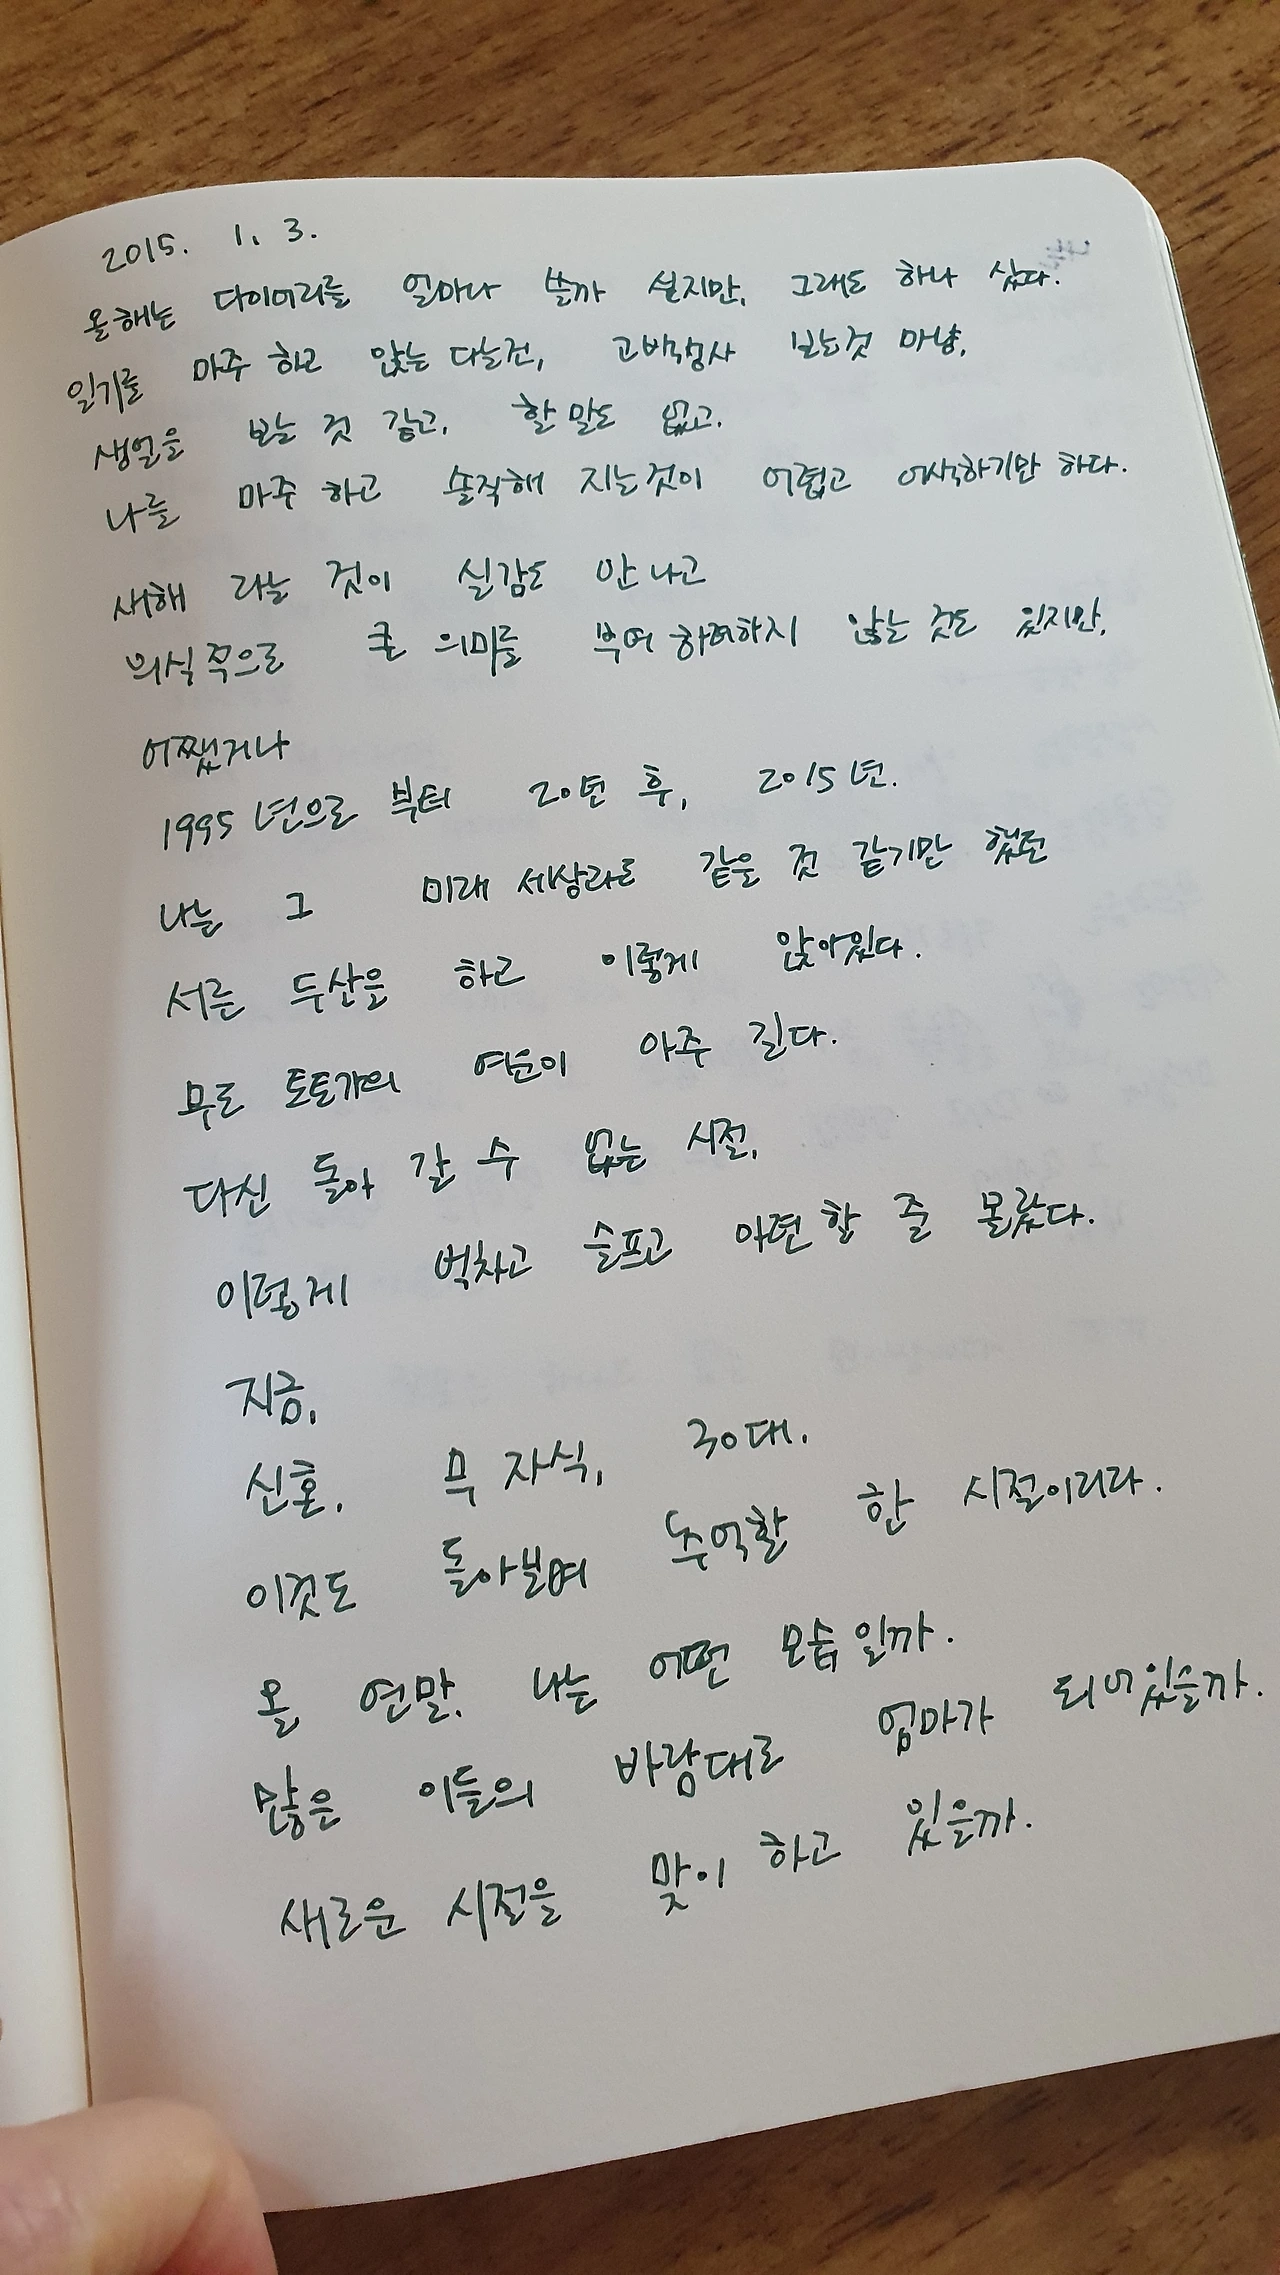 2015. 1. 3.
올해는 다이어리를 얼마나 쓸까 싶지만, 그래도 하나 샀다.
일기를 마주 하고 앉는 다는건, 고박성사 보는것 마냥,
생얼을 보는 것 같고, 할 말도 없고.
나를 마주 하고 솔직해 지는것이 어렵고 어색하기만 하다.
새해 라는 것이 실감도 안 나고
의식적으로 큰 의미를 부여 하려하지 않는 것도 있지만,
어쨌거나
1995년으로 부터 20년 후, 2015년.
나는 그 미래 세상라도 같은 것 같기만 했던
서른 두살을 하고 이렇게 앉아있다.
무도 토토가의 여운이 아주 길다.
다신 돌아 갈 수 없는 시절,
이렇게 벅차고 슬프고 아련할 줄 몰랐다.
지금,
신혼, 무 자식, 30대.
이것도 돌아보며 추억할 한 시절이리라.
올 연말, 나는 어떤 모습일까.
많은 이들의 바람대로 엄마가 되어있을까.
새로운 시절을 맞이 하고 있을까.